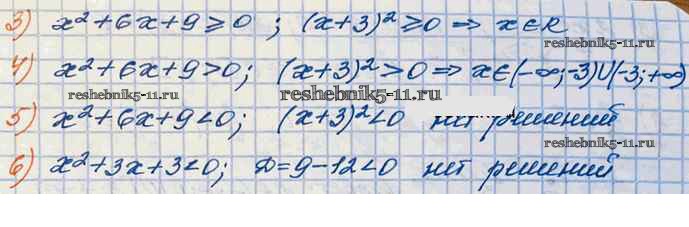 3) x²+6x+9≥0 ; (x+3)²≥0 ⇒ x∈R
reshebnik5-11.ru
4) x²+6x+9>0; (x+3)²>0 ⇒ x∈(-∞;-3)∪(-3;+∞)
reshebnik5-11.ru reshebnik5-11.ru reshebnik5-11.ru
5) x²+6x+9<0; (x+3)²<0 нет решений
reshebnik5-11.ru
6) x²+3x+3<0; D=9-12<0 нет решений